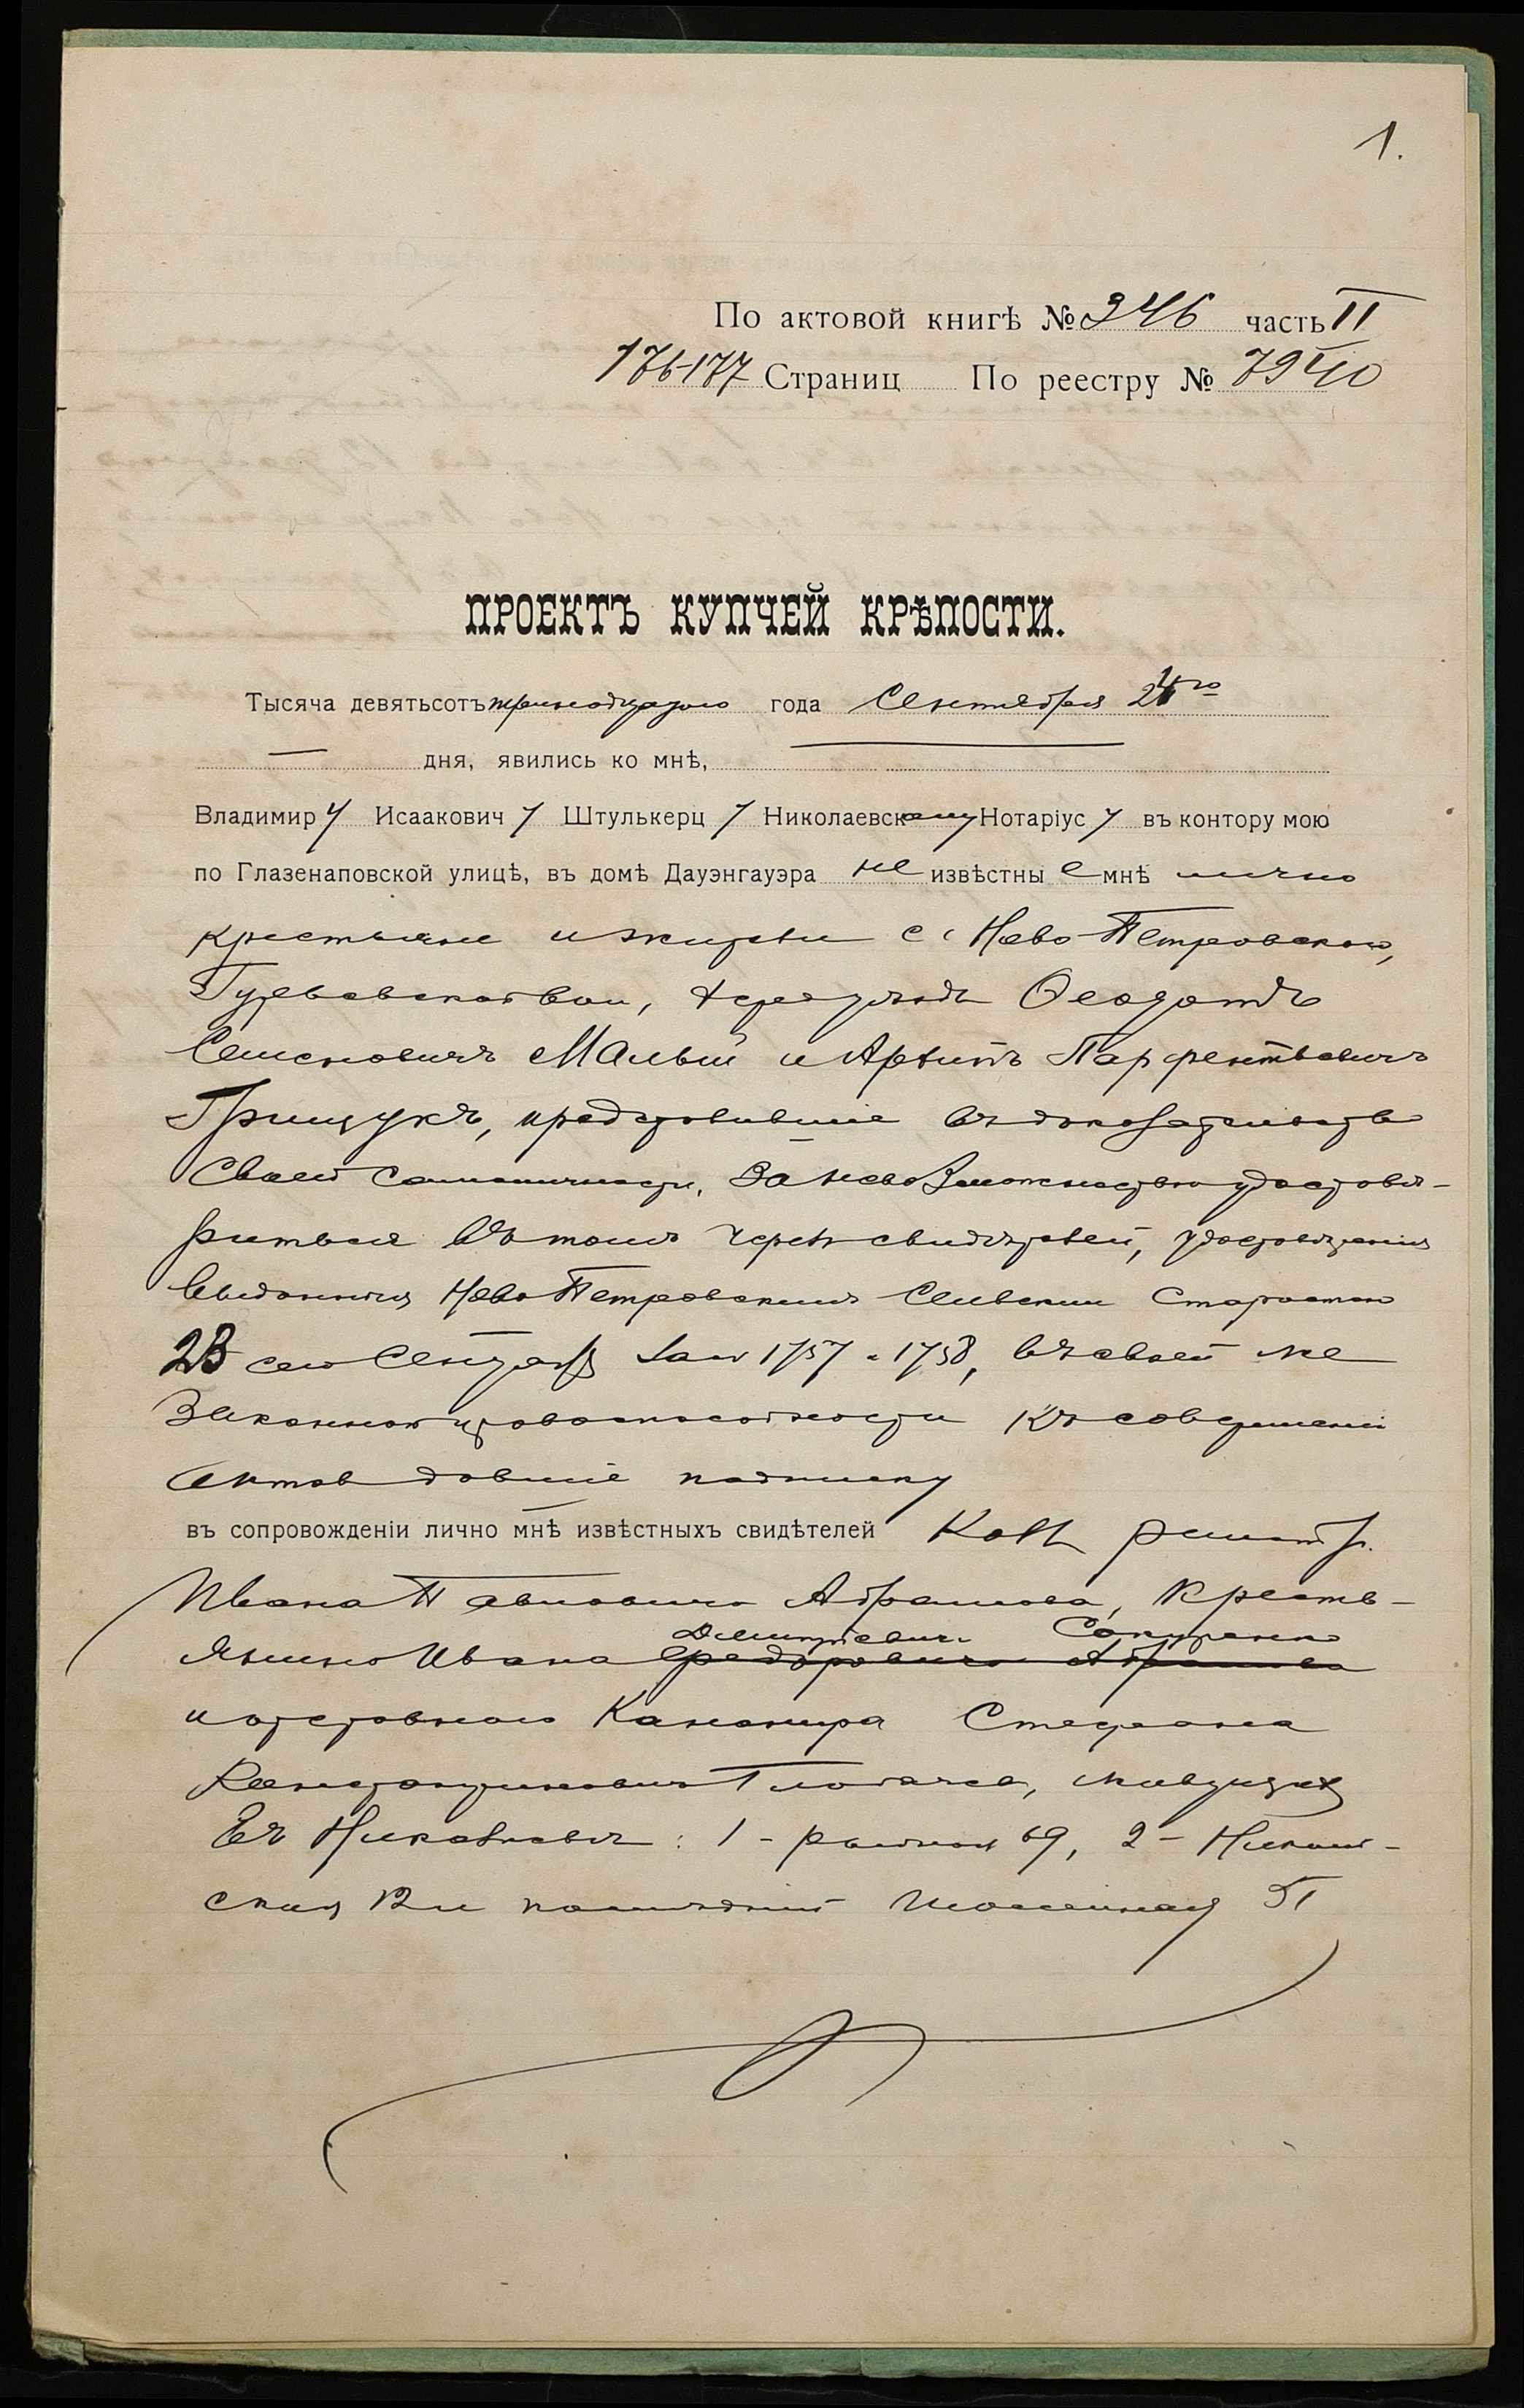 1.
По актовой книгѣ № 246 часть II
176-177 Страниц По реестру № 7940
ПРОЕКТЪ КУПЧЕЙ КРѢПОСТИ.
Тысяча девятьсотъ тринадцатого года Сентября 24го
дня, явились ко мнѣ,
Владимиру Исааковичу Штулькерцу Николаевскому Нотаріусу въ контору мою
по Глазенаповской улицѣ, въ домѣ Дауэнгауэра не извѣстные мнѣ лично
крестьяне и жители с. Ново-Петровского,
Херс уѣзда Ѳеодотъ
Семеновичъ Малый и Архипъ Парфентьевичъ
Грищукъ, представившіе въ доказательство
своей самоличности, за невозможностью удостовѣ-
риться въ томъ черезъ свидѣтелей, удостовѣренія
выданныя Ново Петровскимъ Сельским Старостою
23 сего Сентября за № 1757 и 1758, въ своей же
законной правоспособности къ совершенію
актов давшіе подписку
въ сопровожденіи лично мнѣ извѣстныхъ свидѣтелей Колл регистр.
Ивана Павловича Абрамова, Кресть-
Дмитріевича
янина Ивана Федоровича Абрамова
и отставного Канонира Стефана
Константиновича живущих
въ Николаевѣ: 1 - 69, 2 -
ская 12 и послѣдній 51